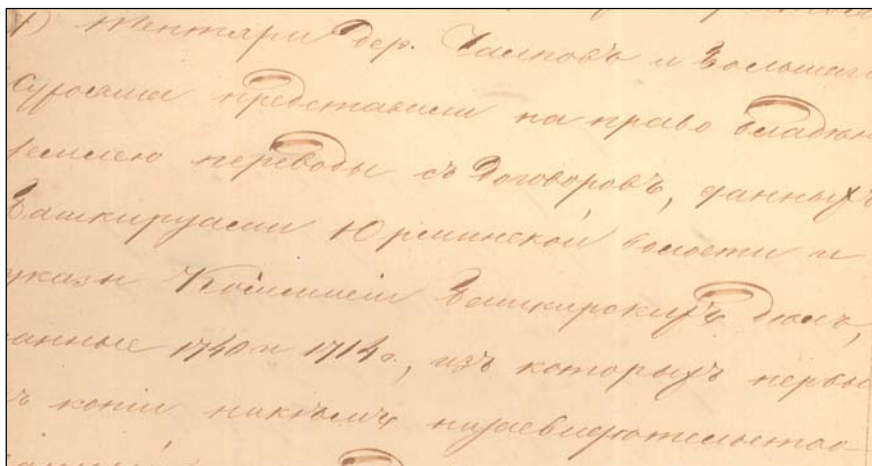 Жители дер. Чалповъ и Большаго
Сурояша представили на право владѣн
землею переводы съ договоровъ, данныхъ
Башкирцами Юрминской волости и
указы Комиссіи Башкирскихъ дѣлъ,
анные 1740 и 1714 г., изъ которыхъ первы
ъ копіи никѣмъ